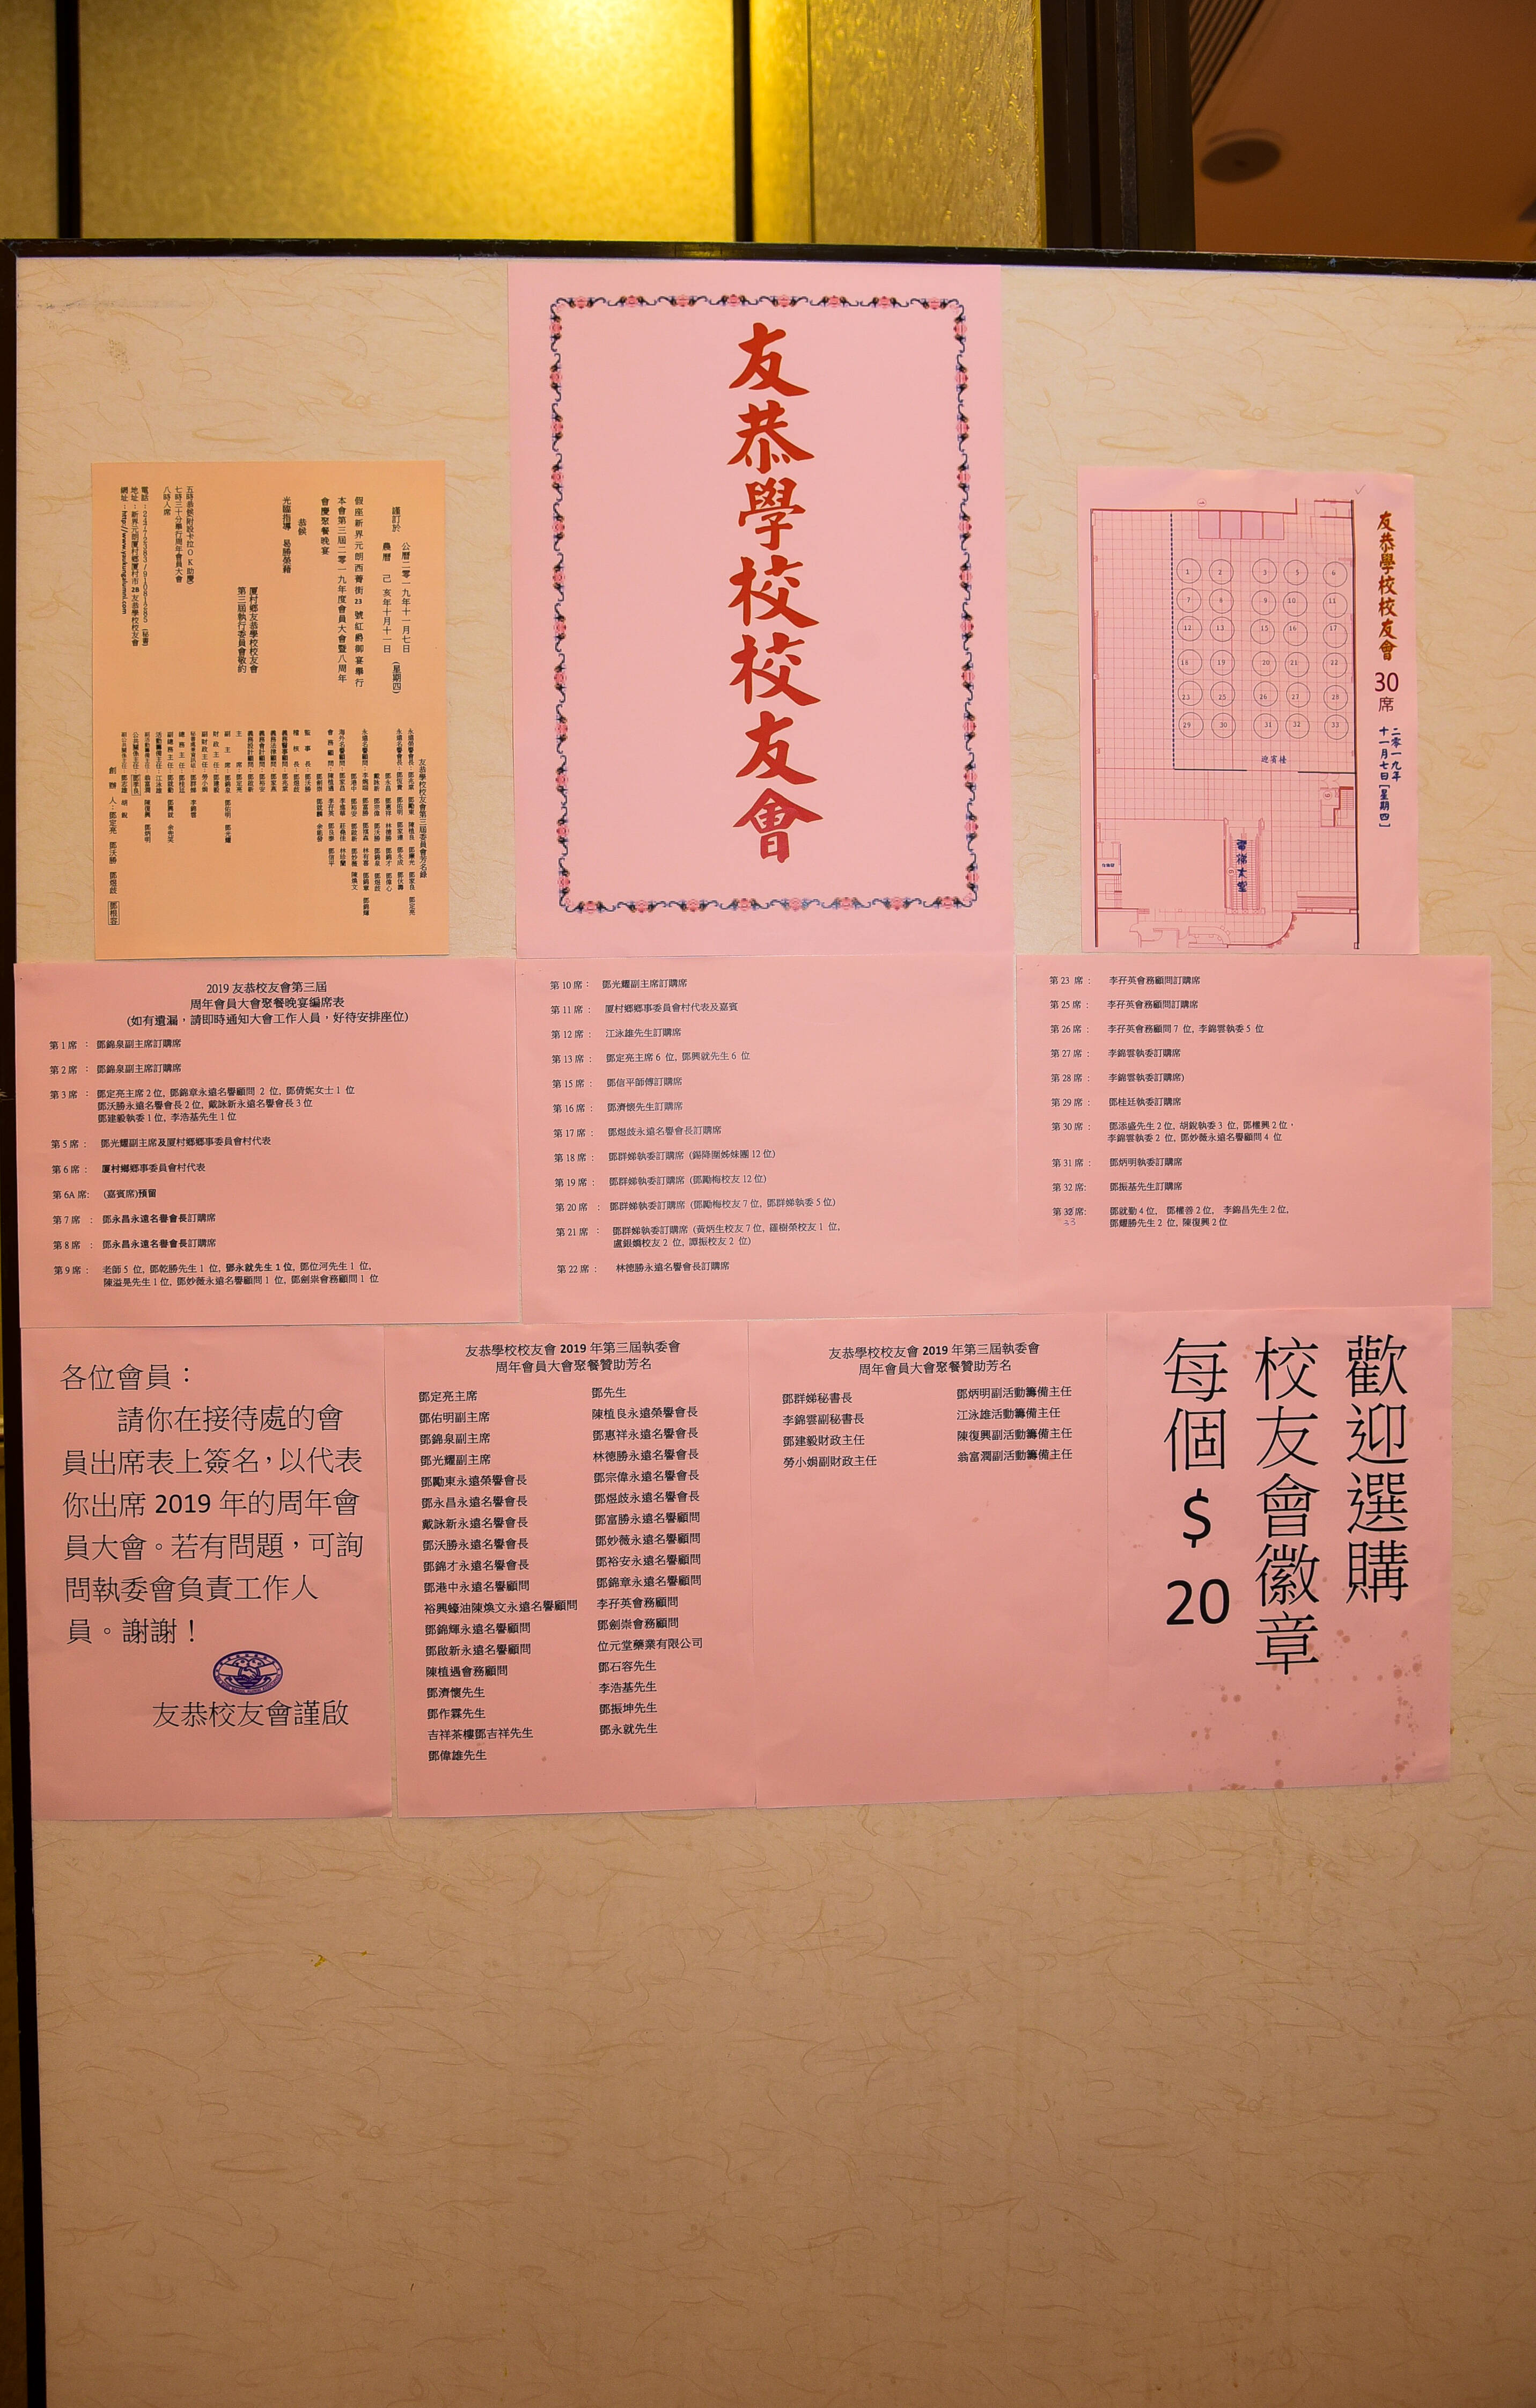 友恭學校校友會
謹訂於
公曆二零一九年十一月七日
農曆 己亥年十月十一日
(星期四)
假座新界元朗西菁街23號紅爵御宴舉行
本會第三屆二零一九年度會員大會暨八周年
會慶聚餐晚宴
恭候
光臨指導 易勝榮藉
廈村鄉友恭學校校友會
第三屆執行委員會敬約
五時恭候附設卡拉OK助慶)
七時三十分舉行周年會員大會
八時入席
地址:新界元朗廈村鄉廈村市28友恭學校校友會
網址:http://www.yaukungalumni.com
友恭學校校友會第三屆委員會芳名錄
創辦人:鄧定亮 鄧沃勝 鄧煜歧 鄧相容
友恭學校校友會
30
席
二零一九年
十一月七日[星期四]
1 2 3 5 6
7 8 9 10 11
12 13 15 16 17
18 19 20 21 22
23 25 26 27 28
29 30 31 32 33
迎賓檯
電梯大堂
2019 友恭校友會第三屆
周年會員大會聚餐晚宴編席表
(如有遺漏,請即時通知大會工作人員,好待安排座位)
第 1 席 : 鄧錦泉副主席訂購席
第 2 席 : 鄧錦泉副主席訂購席
第 3 席 : 鄧定亮主席 2 位, 鄧錦章永遠名譽顧問 2 位, 鄧倩妮女士 1 位
鄧沃勝永遠名譽會長 2 位, 戴詠新永遠名譽會長 3 位
鄧建毅執委 1 位, 李浩基先生 1 位
第 5 席 : 鄧光耀副主席及廈村鄉鄉事委員會村代表
第 6 席 : 廈村鄉鄉事委員會村代表
第 6A 席: (嘉賓席)預留
第 7 席 : 鄧永昌永遠名譽會長訂購席
第 8 席 : 鄧永昌永遠名譽會長訂購席
第 9 席 : 老師 5 位, 鄧乾勝先生 1 位, 鄧永就先生 1 位, 鄧位河先生 1 位,
陳溢晃先生 1 位, 鄧妙薇永遠名譽顧問 1 位, 鄧劍崇會務顧問 1 位
第 10 席 : 鄧光耀副主席訂購席
第 11 席 : 廈村鄉鄉事委員會村代表及嘉賓
第 12 席 : 江泳雄先生訂購席
第 13 席 : 鄧定亮主席 6 位, 鄧興就先生 6 位
第 15 席 : 鄧信平師傅訂購席
第 16 席 : 鄧濟懷先生訂購席
第 17 席 : 鄧煜歧永遠名譽會長訂購席
第 18 席 : 鄧群娣執委訂購席 (錫降圍姊妹團 12 位)
第 19 席 : 鄧群娣執委訂購席 (鄧勵梅校友 12 位)
第 20 席 : 鄧群娣執委訂購席 (鄧勵梅校友 7 位, 鄧群娣執委 5 位)
第 21 席 : 鄧群娣執委訂購席 (黃炳生校友 7 位, 羅樹榮校友 1 位,
盧銀嬌校友 2 位, 譚振校友 2 位)
第 22 席 : 林德勝永遠名譽會長訂購席
第 23 席 : 李孖英會務顧問訂購席
第 25 席 : 李孖英會務顧問訂購席
第 26 席 : 李孖英會務顧問 7 位, 李錦雲執委 5 位
第 27 席 : 李錦雲執委訂購席
第 28 席 : 李錦雲執委訂購席)
第 29 席 : 鄧桂廷執委訂購席
第 30 席 : 鄧添盛先生 2 位, 胡銳執委 3 位, 鄧權興 2 位,
李錦雲執委 2 位, 鄧妙薇永遠名譽顧問 4 位
第 31 席 : 鄧炳明執委訂購席
第 32 席: 鄧振基先生訂購席
第 32 席: 鄧就勤 4 位, 鄧權善 2 位, 李錦昌先生 2 位,
33
鄧耀勝先生 2 位, 陳復興 2 位
各位會員:
請你在接待處的會
員出席表上簽名,以代表
你出席 2019 年的周年會
員大會。若有問題,可詢
問執委會負責工作人
員。謝謝!
友恭校友會謹啟
友恭學校校友會 2019 年第三屆執委會
周年會員大會聚餐贊助芳名
鄧定亮主席
鄧佑明副主席
鄧錦泉副主席
鄧光耀副主席
鄧勵東永遠榮譽會長
鄧永昌永遠名譽會長
戴詠新永遠名譽會長
鄧沃勝永遠名譽會長
鄧錦才永遠名譽會長
鄧港中永遠名譽顧問
裕興蠔油陳煥文永遠名譽顧問
鄧錦輝永遠名譽顧問
鄧啟新永遠名譽顧問
陳植遇會務顧問
鄧濟懷先生
鄧作霖先生
吉祥茶樓鄧吉祥先生
鄧偉雄先生
鄧先生
陳植良永遠榮譽會長
鄧惠祥永遠名譽會長
林德勝永遠名譽會長
鄧宗偉永遠名譽會長
鄧煜歧永遠名譽會長
鄧富勝永遠名譽顧問
鄧妙薇永遠名譽顧問
鄧裕安永遠名譽顧問
鄧錦章永遠名譽顧問
李孖英會務顧問
鄧劍崇會務顧問
位元堂藥業有限公司
鄧石容先生
李浩基先生
鄧振坤先生
鄧永就先生
友恭學校校友會 2019 年第三屆執委會
周年會員大會聚餐贊助芳名
鄧群娣秘書長
李錦雲副秘書長
鄧建毅財政主任
勞小娟副財政主任
鄧炳明副活動籌備主任
江泳雄活動籌備主任
陳復興副活動籌備主任
翁富潤副活動籌備主任
歡迎選購
校友會徽章
每個 $ 20